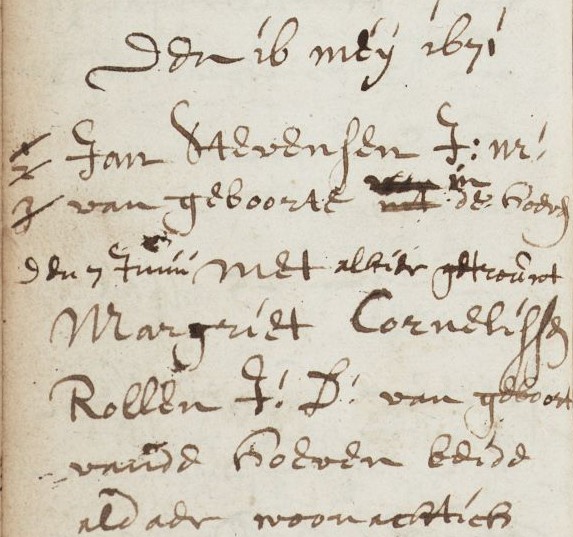 Den 16 meÿ 1671
Jan Stevensen J: m:
van geboorte in de Hoeve
den 7 Junii met alhier getrouwt
Margriet Cornelissen
Rollen J: D: van geboort
vande Hoeven beide
aldaer woonachtich